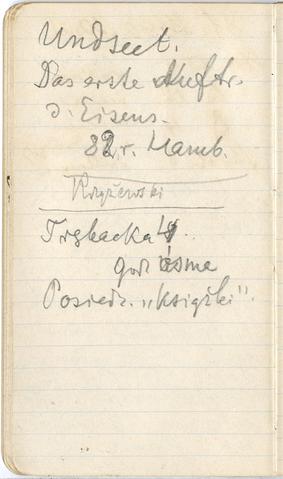 Undset.
Das erste Auftr.
d. Eisens.
82 r. Hamb.
Krzyżewski
Trębacka 4.
godz ósma
Posiedz. „książki".